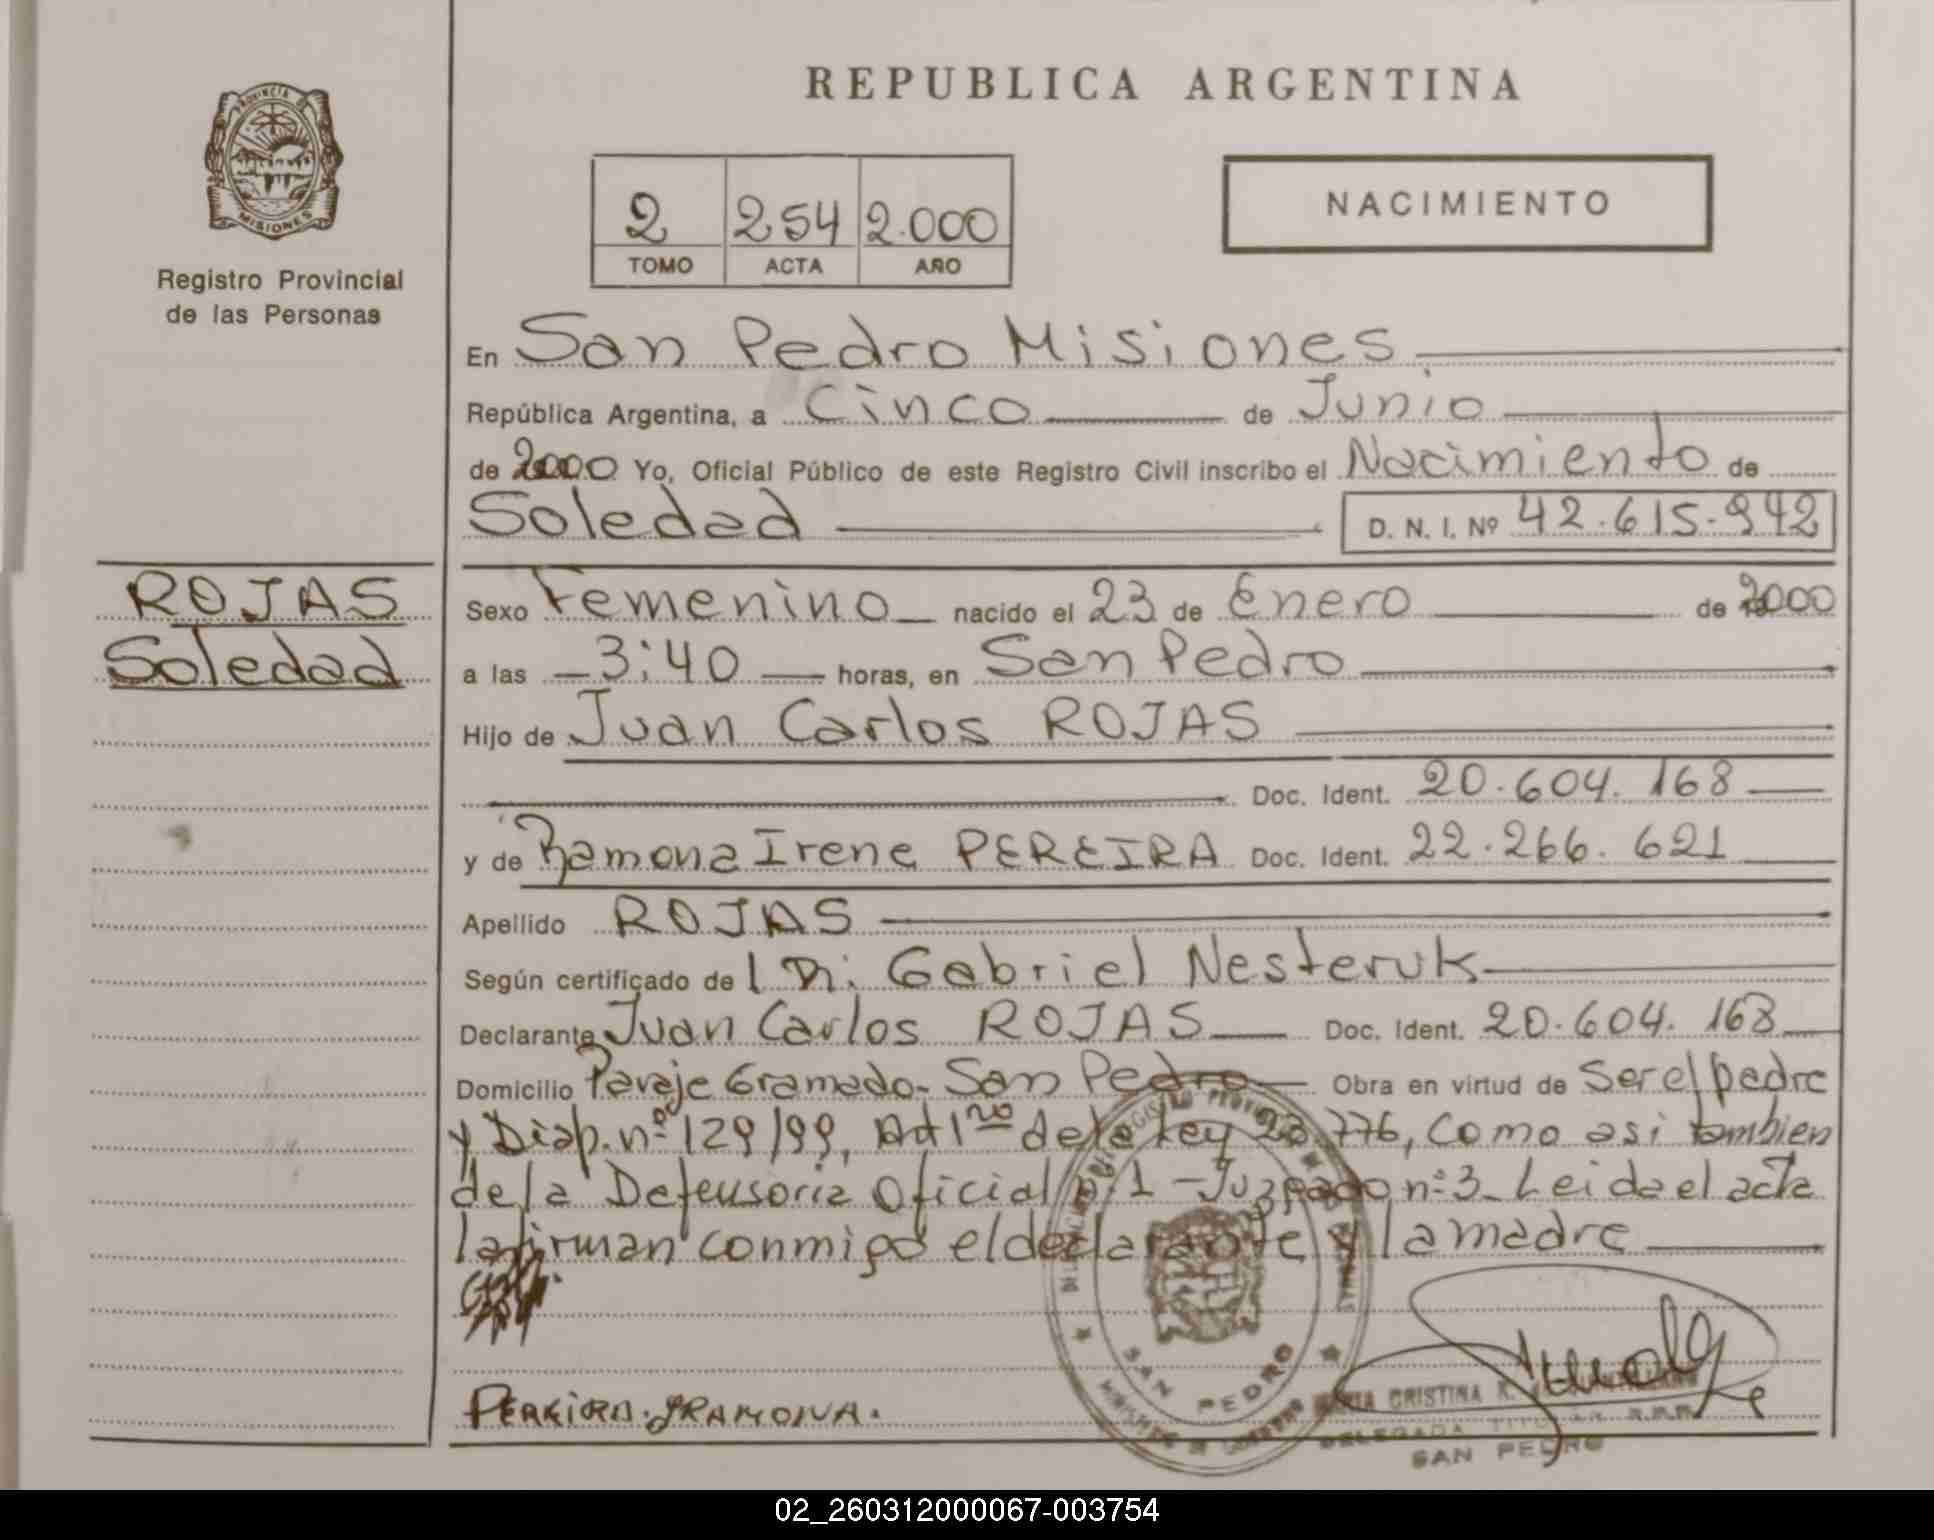 PROVINCIA DE
MISIONES
Registro Provincial
de las Personas
REPUBLICA ARGENTINA
2 254 2.000
TOMO ACTA AÑO
NACIMIENTO
En San Pedro Misiones
República Argentina, a Cinco de Junio
de 2000 Yo, Oficial Público de este Registro Civil inscribo el Nacimiento de
Soledad D. N. I. Nº 42.615.942
ROJAS
Soledad
Sexo Femenino nacido el 23 de Enero de 2000
a las 3:40 horas, en San Pedro
Hijo de Juan Carlos ROJAS
Doc. Ident. 20.604.168
y de Ramona Irene PEREIRA Doc. Ident. 22.266.621
Apellido ROJAS
Según certificado de Gabriel Nesteruk
Declarante Juan Carlos ROJAS Doc. Ident. 20.604.168
Domicilio Paraje Gramado- San Pedro Obra en virtud de Ser el padre
y Disp. nº 129/99, Art 1ro de la Ley 23.776, Como asi tambien
de la Defensoria Oficial nº 1 - Juzgado nº 3_ Leida el acta
la firman conmigo el declarante y la madre
SAN PEDRO
PEREIRA. RAMONA.
CRISTINA
DELEGADA TITULAR R.P.P.
SAN PEDRO
02_260312000067-003754